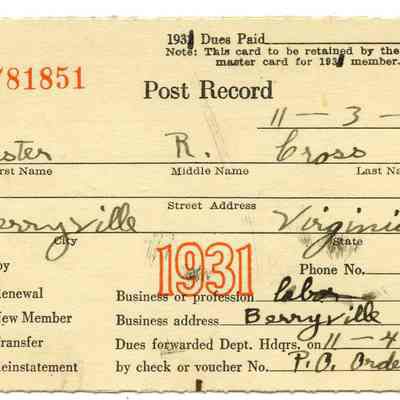 1931 Dues Paid
Note: This card to be retained by the
master card for 1931 member.
781851
Post Record
11 - 3 -
ster R. Cross
irst Name Middle Name Last Na
Street Address
erryville Virginia
City State
by 1931 Phone No.
Renewal Business or profession labor
New Member Business address Berryville
Transfer Dues forwarded Dept. Hdqrs. on 11 - 4
Reinstatement by check or voucher No. P.O. Orde